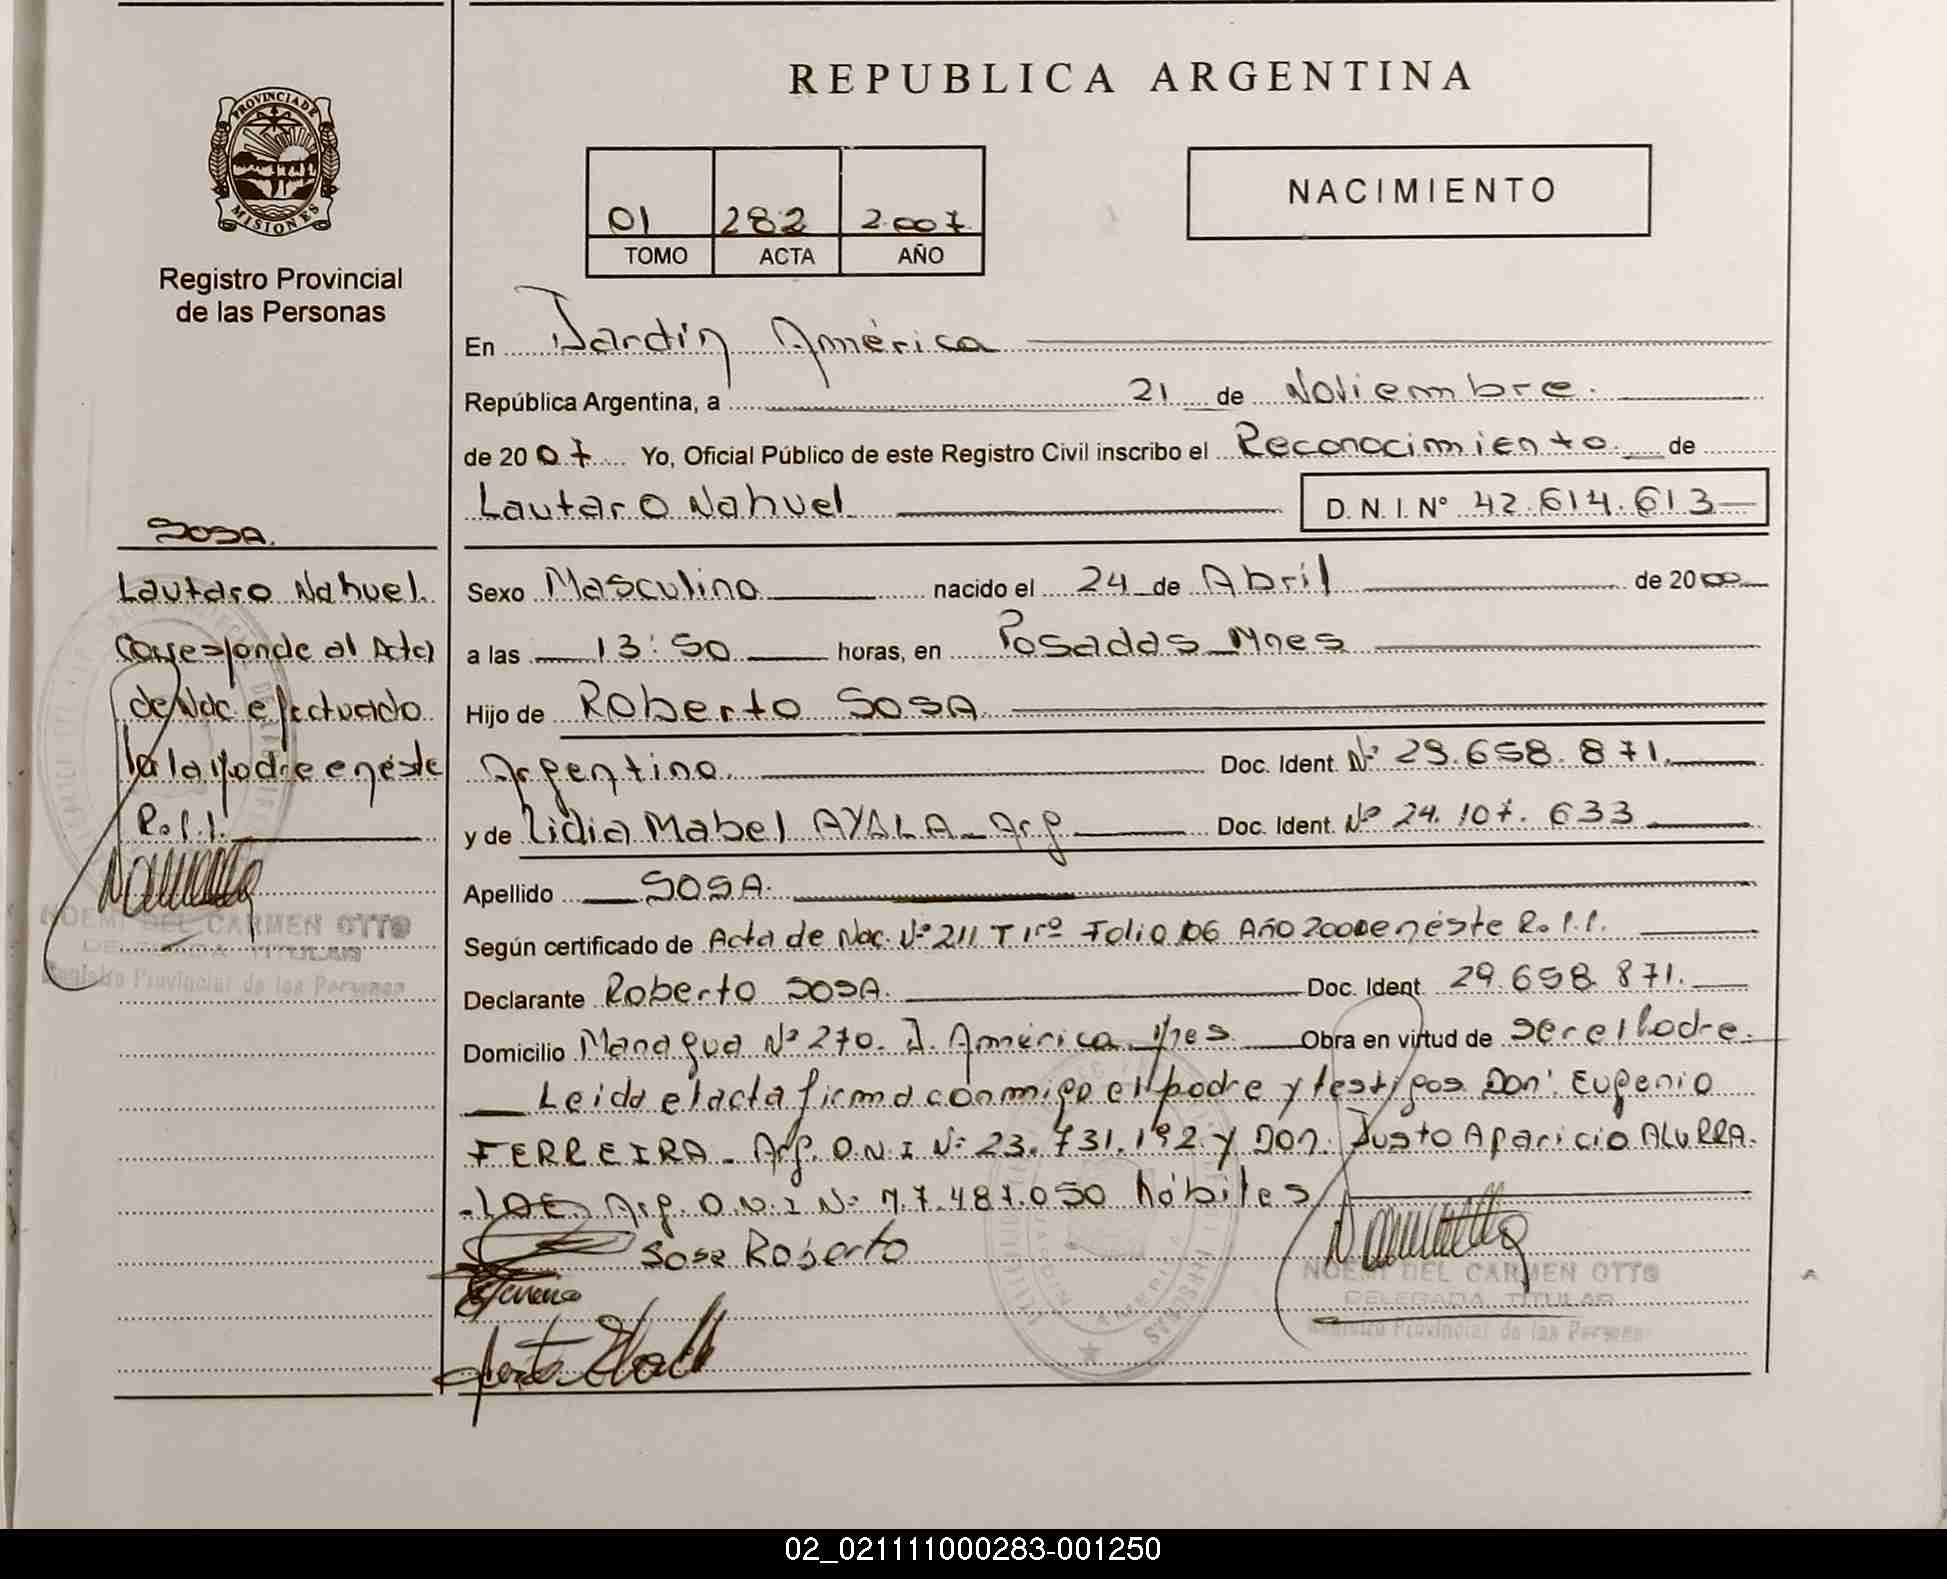 REPUBLICA ARGENTINA
PROVINCIA DE
MISIONES
Registro Provincial
de las Personas
01 282 2.007
TOMO ACTA AÑO
NACIMIENTO
En Jardín América
República Argentina, a 21 de Noviembre.
de 2007 Yo, Oficial Público de este Registro Civil inscribo el Reconocimiento de
Lautaro Nahuel D. N. I. N° 42.614.613
Sexo Masculino nacido el 24 de Abril de 2000
a las 13:50 horas, en Posadas Mnes
Hijo de Roberto SOSA
Argentino Doc. Ident. N° 29.658.871.
y de Lidia Mabel AYALA - Arg Doc. Ident. N° 24.107.633
Apellido SOSA.
Según certificado de Acta de Nac. N° 211 T 1ro Folio 106 Año 2000 en éste R.P.P.
Declarante Roberto SOSA. Doc. Ident. 29.658.871.
Domicilio Managua N° 270. J. América Mnes Obra en virtud de ser el Padre.
Leida el acta firma conmigo el padre y testigos Don: Eugenio
FERREIRA - Arg. D.N.I N° 23.731.192 y Don: Justo Aparicio
Arg. D.N.I N° 7.487.050 hábiles
Sosa Roberto
NOEMI DEL CARMEN OTTO
DELEGADA TITULAR
Registro Provincial de las Personas
SOSA.
Lautaro Nahuel.
Corresponde al Acta
de Nac efectuado
la Madre en éste
R.P.P.
NOEMI DEL CARMEN OTTO
DELEGADA TITULAR
Registro Provincial de las Personas
02_021111000283-001250